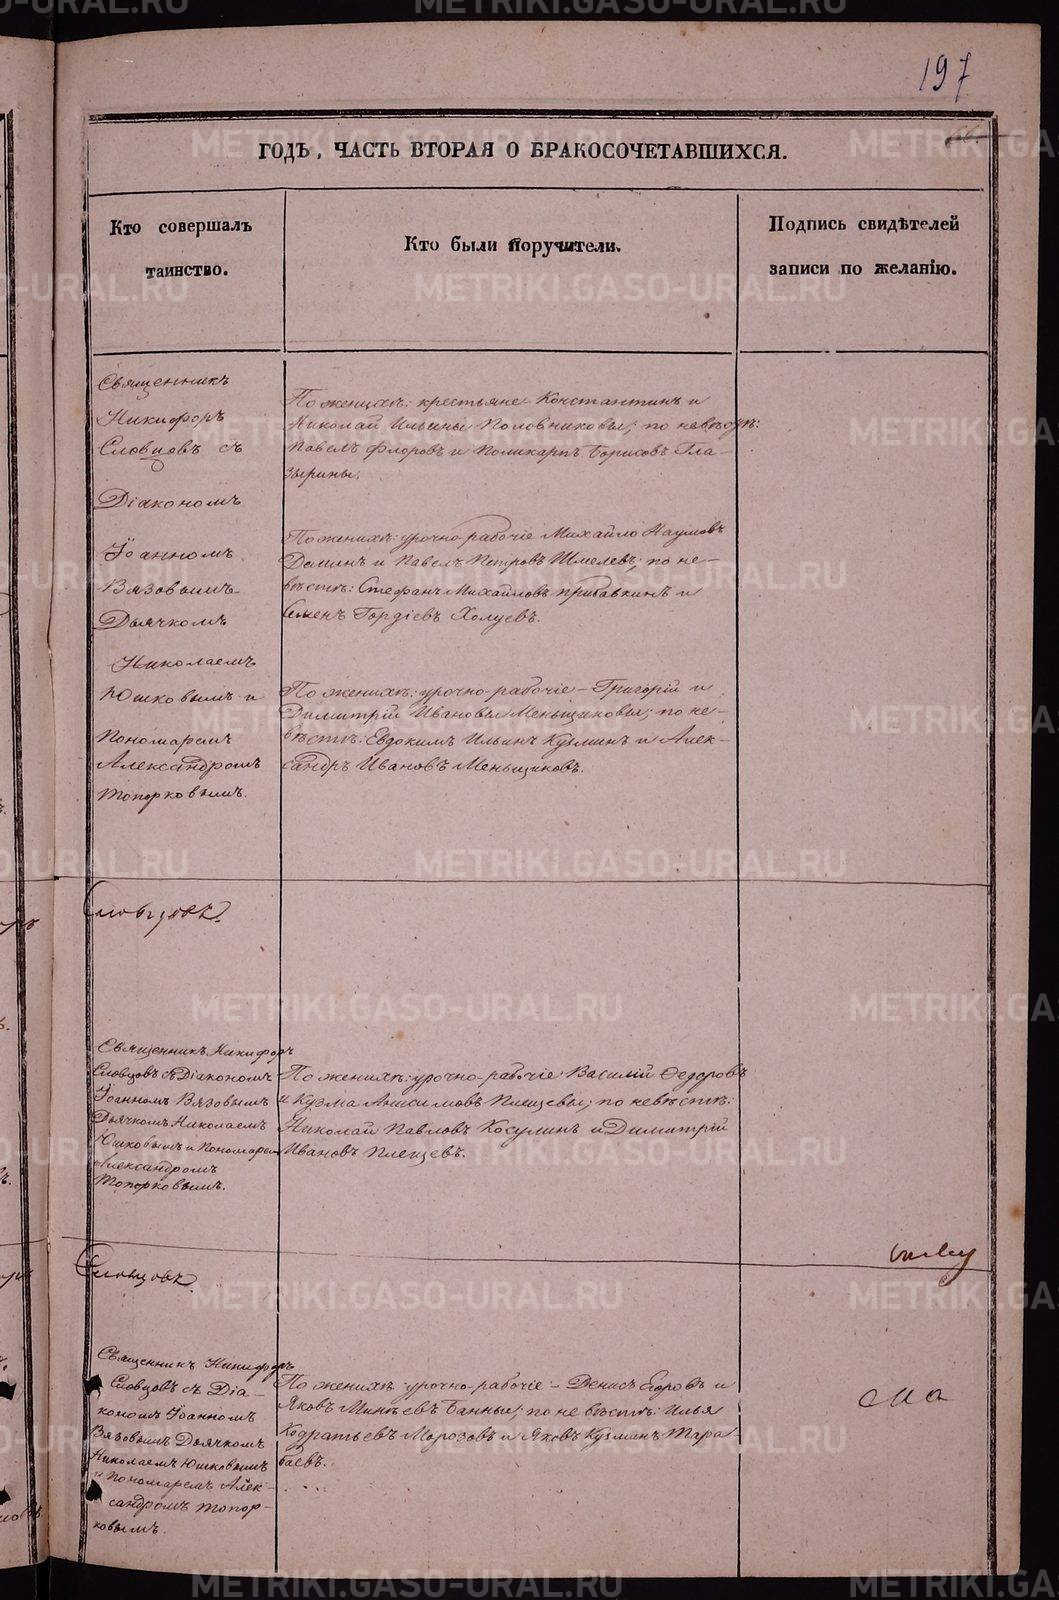 197
ГОДЪ, ЧАСТЬ ВТОРАЯ О БРАКОСОЧЕТАВШИХСЯ.
Кто совершалъ
таинство.
Кто были поручители.
Подпись свидѣтелей
записи по желанію.
Священникъ
Никифоръ
Словцовъ съ
Діакономъ
Іоанномъ
Вязовымъ
Дьячкомъ
Николаемъ
Юшковымъ и
Пономаремъ
Александромъ
Топорковымъ.
По женихѣ: крестьяне Константинъ и
Николай Ильины Половниковы; по невѣстѣ:
Павелъ Флоровъ и Поликарпъ Борисовъ Гла-
зырины.
По женихѣ: урочно-рабочіе Михайло Наумовъ
Долинъ и Павелъ Петровъ Шмелевъ; по не-
вѣстѣ: Стефанъ Михайловъ Прибавкинъ и
Семенъ Гордіевъ Холуевъ.
По женихѣ: урочно-рабочіе – Григорій и
Димитрій Ивановы Меньщиковы; по не-
вѣстѣ: Евдокимъ Ильинъ Кузминъ и Алек-
сандръ Ивановъ Меньщиковъ.
Словцовъ.
Священникъ Никифоръ
Словцовъ съ Діакономъ
Іоанномъ Вязовымъ
Дьячкомъ Николаемъ
Юшковымъ и Пономарем
Александромъ
Топорковымъ.
По женихѣ: урочно-рабочіе Василій Федоровъ
и Кузма Анисимовъ Плещевы; по невѣстѣ:
Николай Павловъ Косулинъ и Димитрій
Ивановъ Плещевъ.
Словцовъ
Священникъ Никифоръ
Словцовъ съ Діа-
кономъ Іоанномъ
Вязовымъ Дьячкомъ
Николаемъ Юшковымъ
и Пономаремъ Алек-
сандромъ Топор-
ковымъ.
По женихѣ урочно-рабочіе – Денисъ Егоровъ и
Яковъ Минѣевъ Банны; по невѣстѣ: Илья
Кодратьевъ Морозовъ и Яковъ Кузминъ Тара-
баевъ.
METRIKI.GASO-URAL.RU